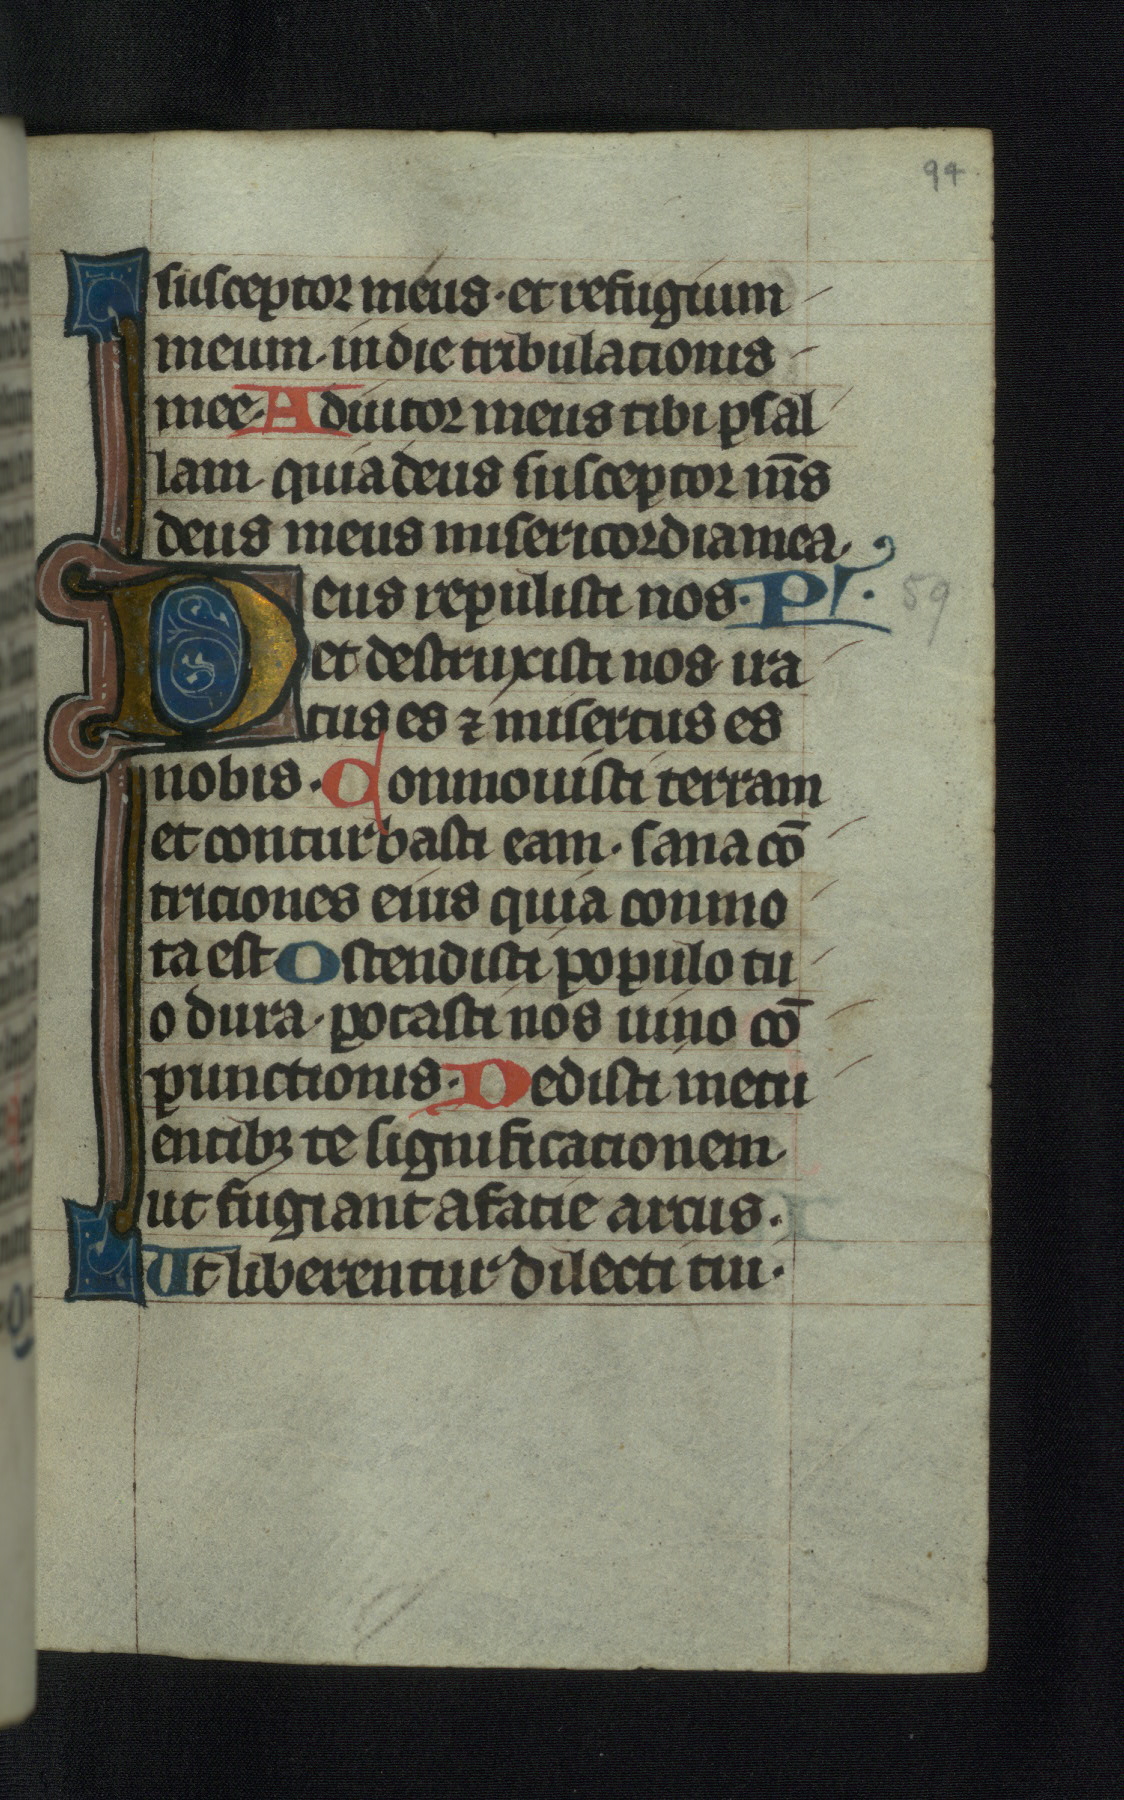 94
susceptor meus · et refugium
meum · in die tribulationis
mee · Adiutor meus tibi psal
lam · quia deus susceptor m̅s
deus meus misericordia mea ·
Deus repulisti nos · Ps · 59
et destruxisti nos ira
tus es ⁊ misertus es
nobis · Conmouisti terram
et conturbasti eam · sana co̅
triciones eius quia conmo
ta est Ostendisti populo tu
o dura · potasti nos uino co̅
punctionis · Dedisti metu
entibꝫ te significationem ·
ut fugiant a facie arcus ·
Ut liberentur dilecti tui ·